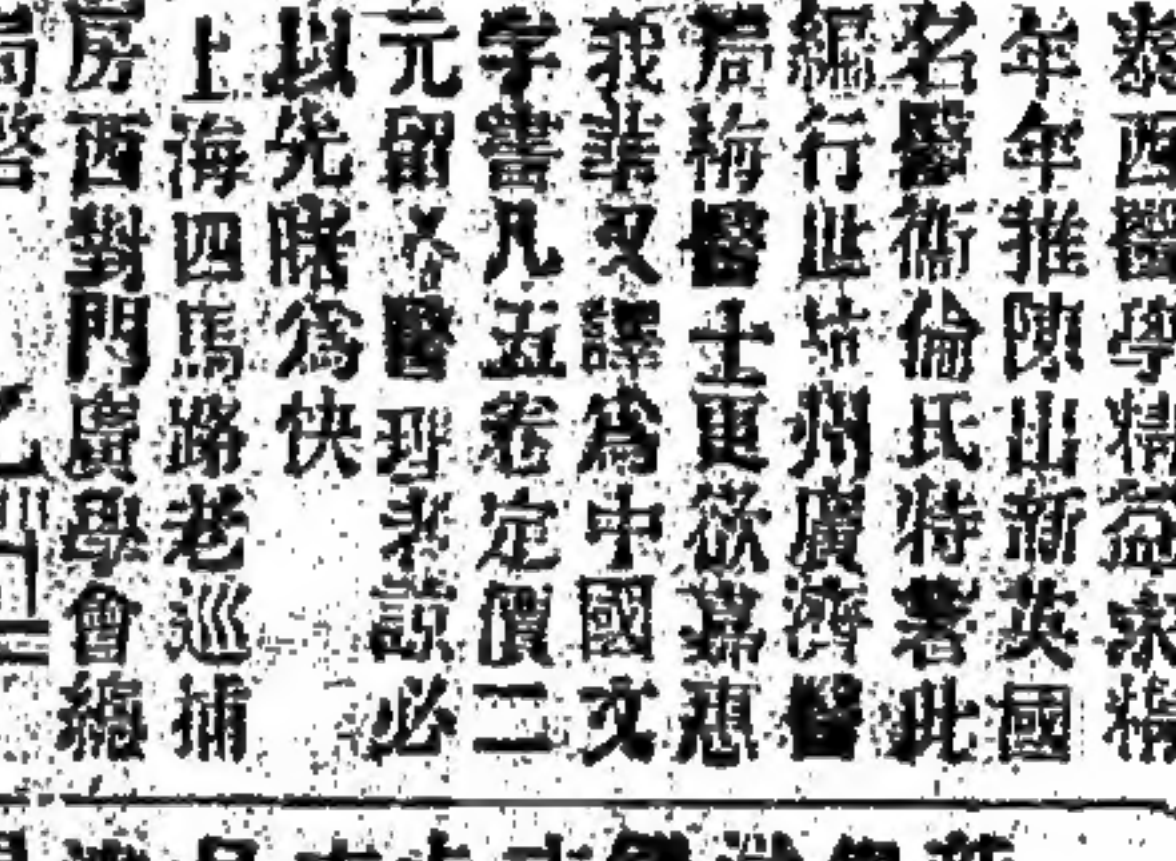 泰西醫學精益求精
年年推陳出新英國
名醫衛倫氏特著此
編行世杭州廣濟醫
局梅醫士更欲嘉惠
我華又譯為中國文
字書凡五卷定價二
元留心醫理者諒必
以先睹為快
上海四馬路老巡捕
房西對門廣學會總